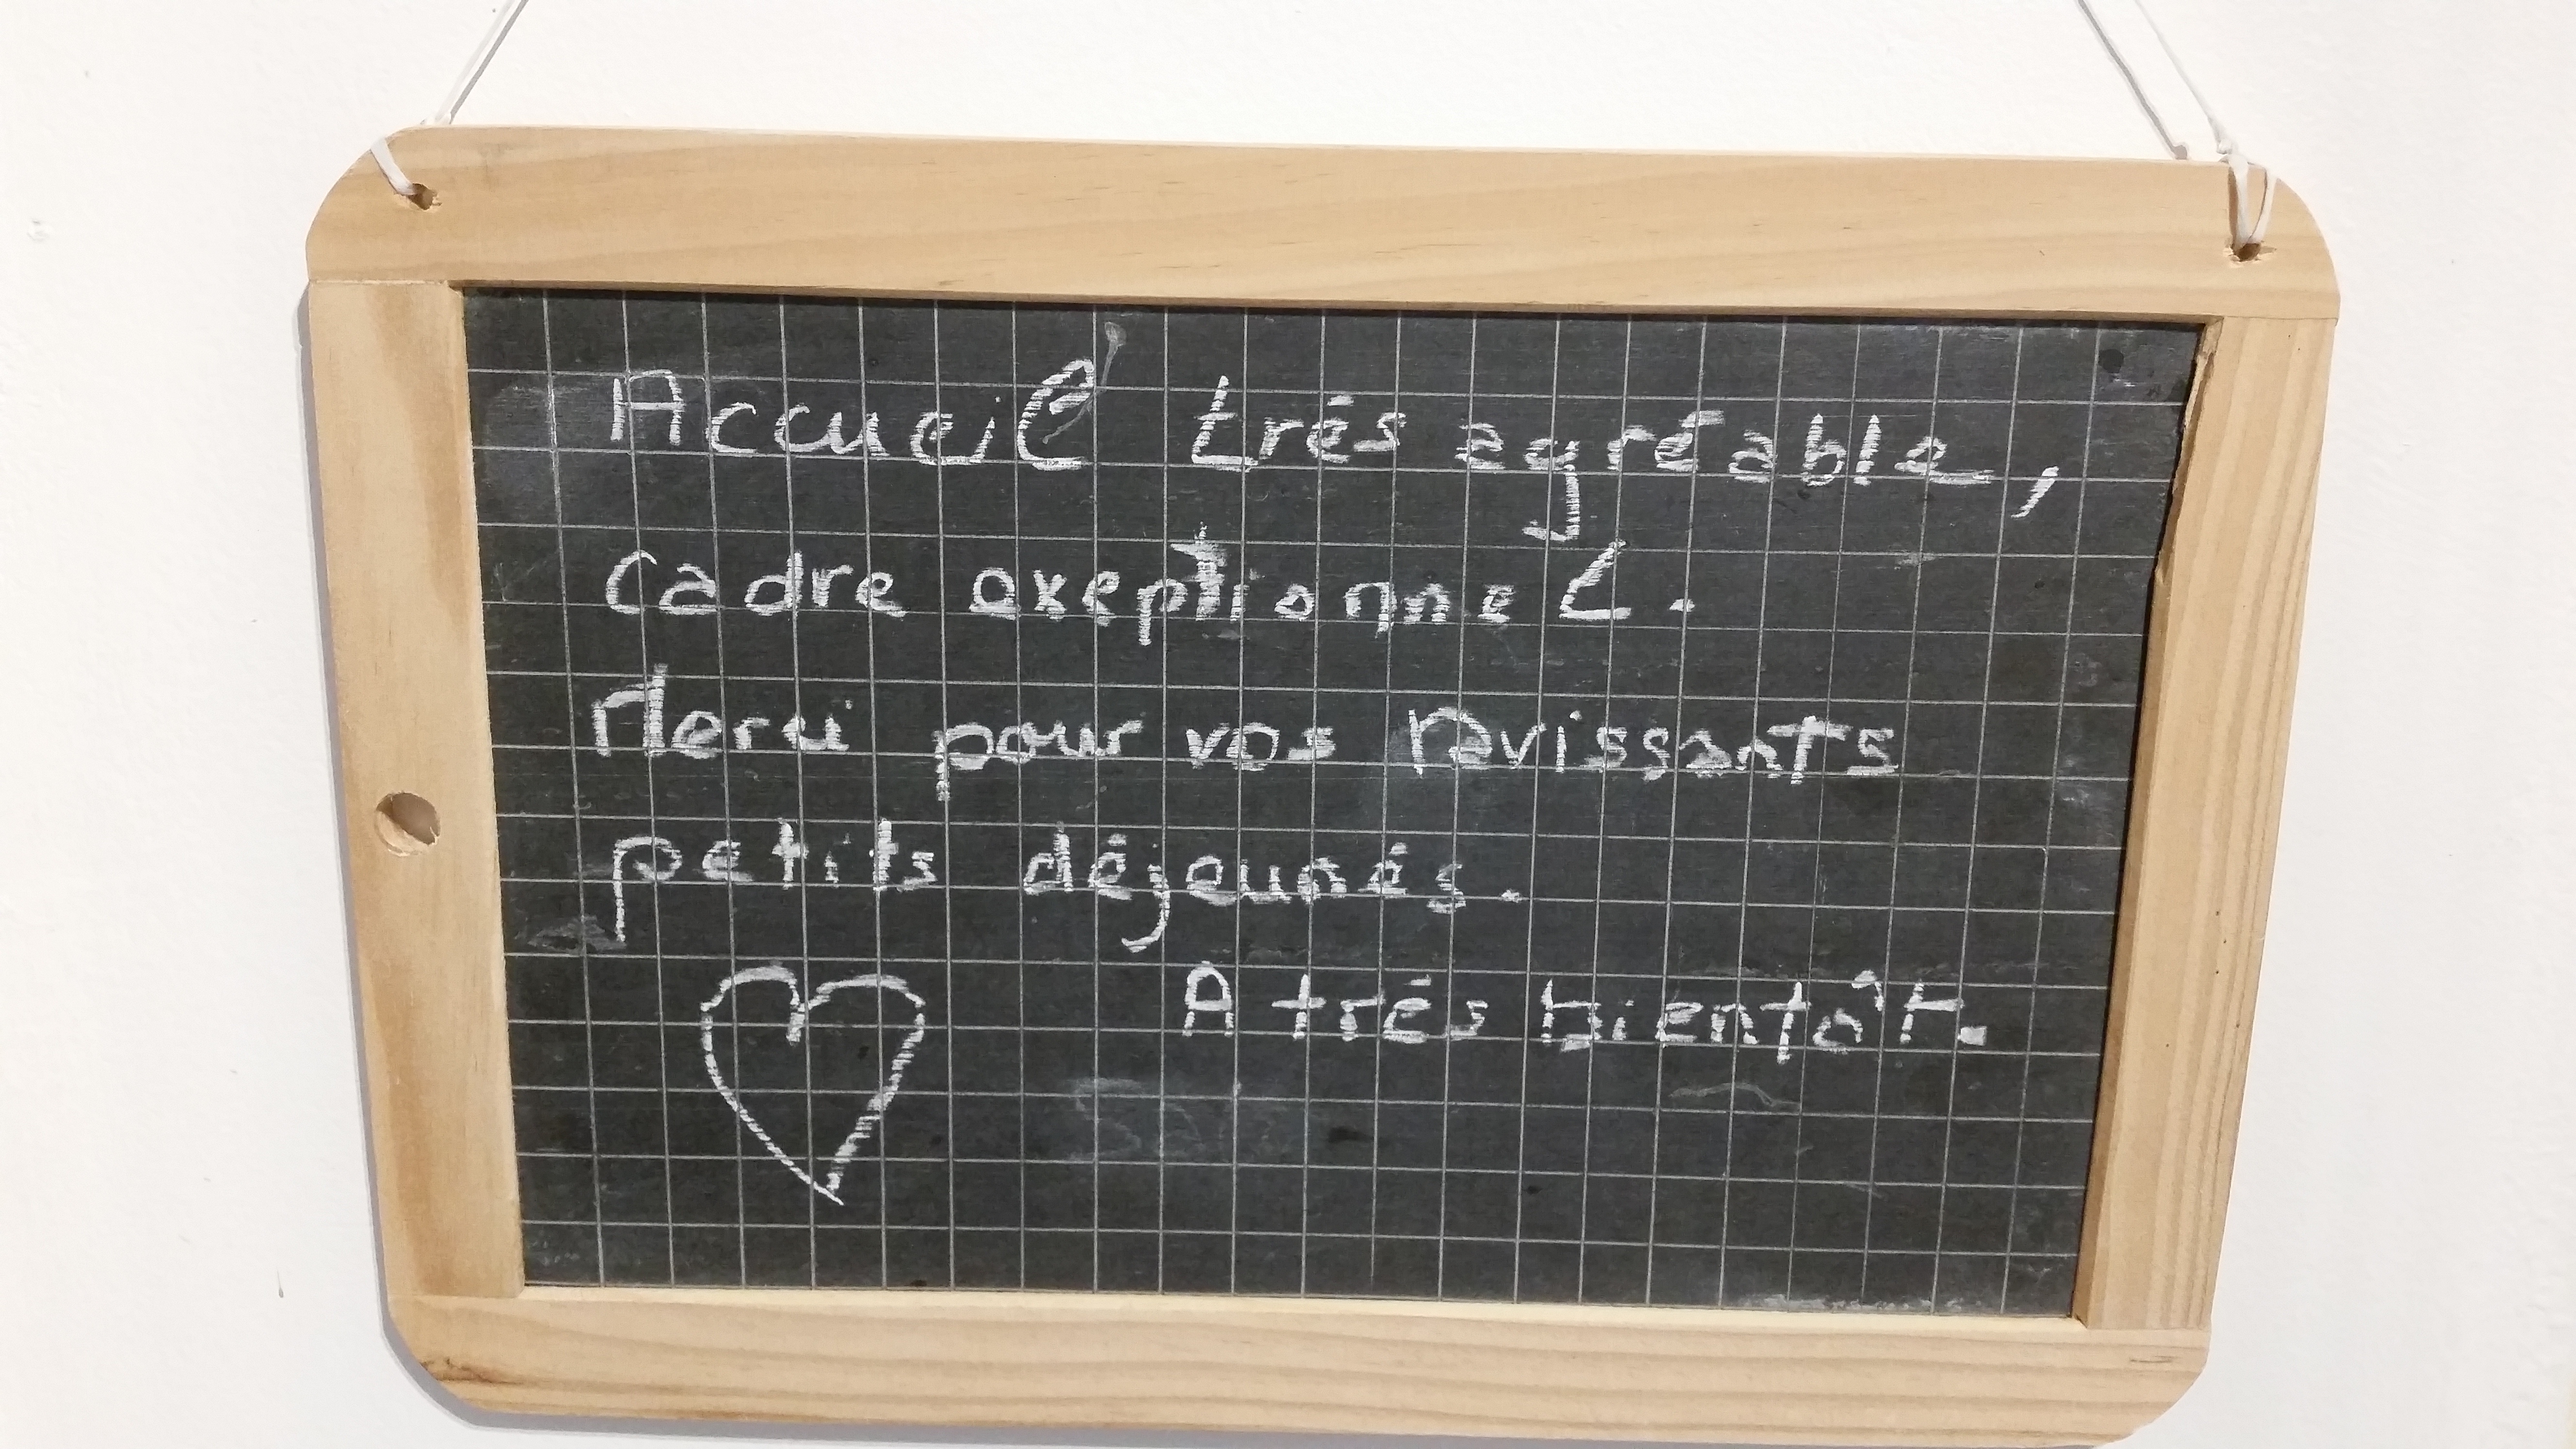 Accueil trés agréable,
cadre exeptionnel.
Merci pour vos ravissants
petits déjeunés.
A trés bientôt.